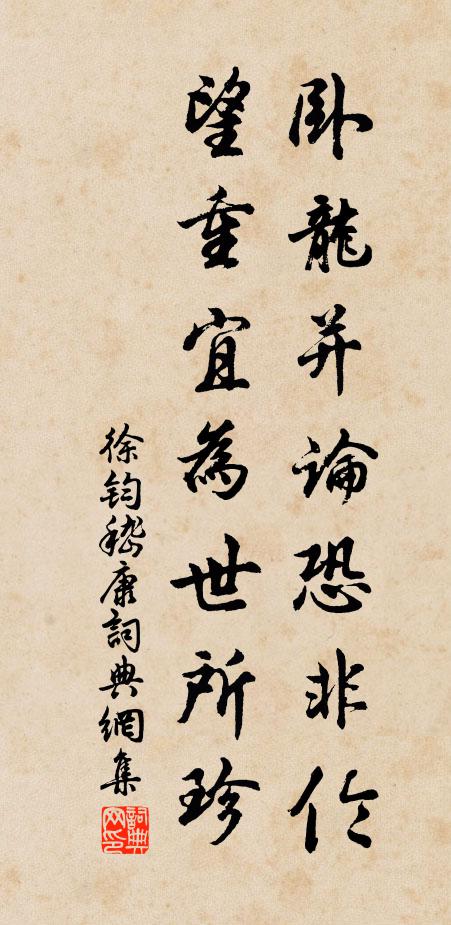 卧龍并論恐非倫
望重宜為世所珍
徐鈞嵇康詞典網集
詞典网印